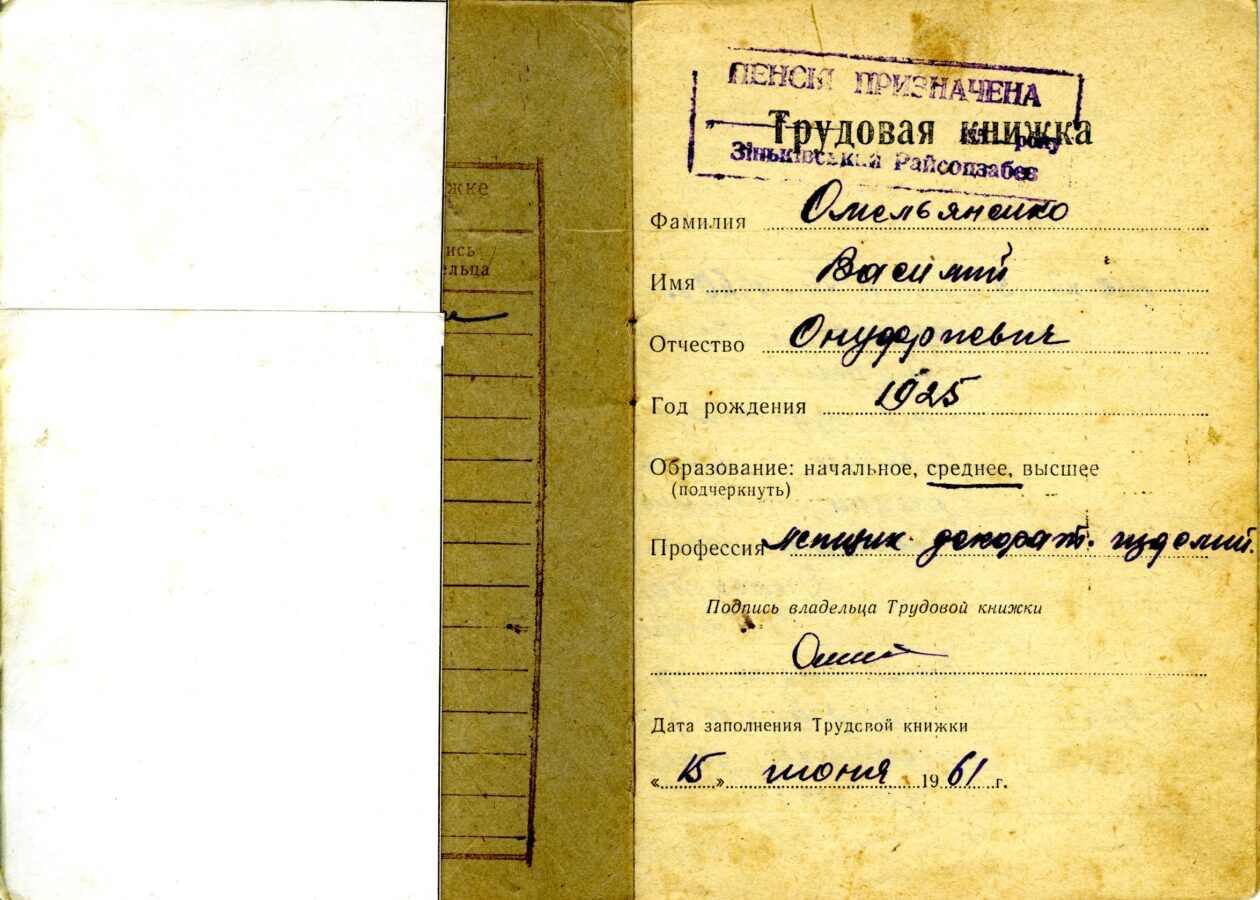 жке
ись
льца
ПЕНСІЯ ПРИЗНАЧЕНА
Трудовая книжка
року
Зіньківський Райсоцзабез
Фамилия Омельяненко
Имя Василий
Отчество Онуфриевич
Год рождения 1925
Образование: начальное, среднее, высшее
(подчеркнуть)
Профессия лепщик декорат. изделий.
Подпись владельца Трудовой книжки
Дата заполнения Трудовой книжки
« 15 » июня 19 61 г.